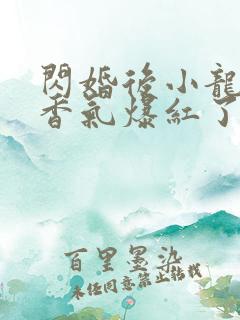 閃婚後小龍
香氣爆紅了
百里墨染
未任同意禁止轉載